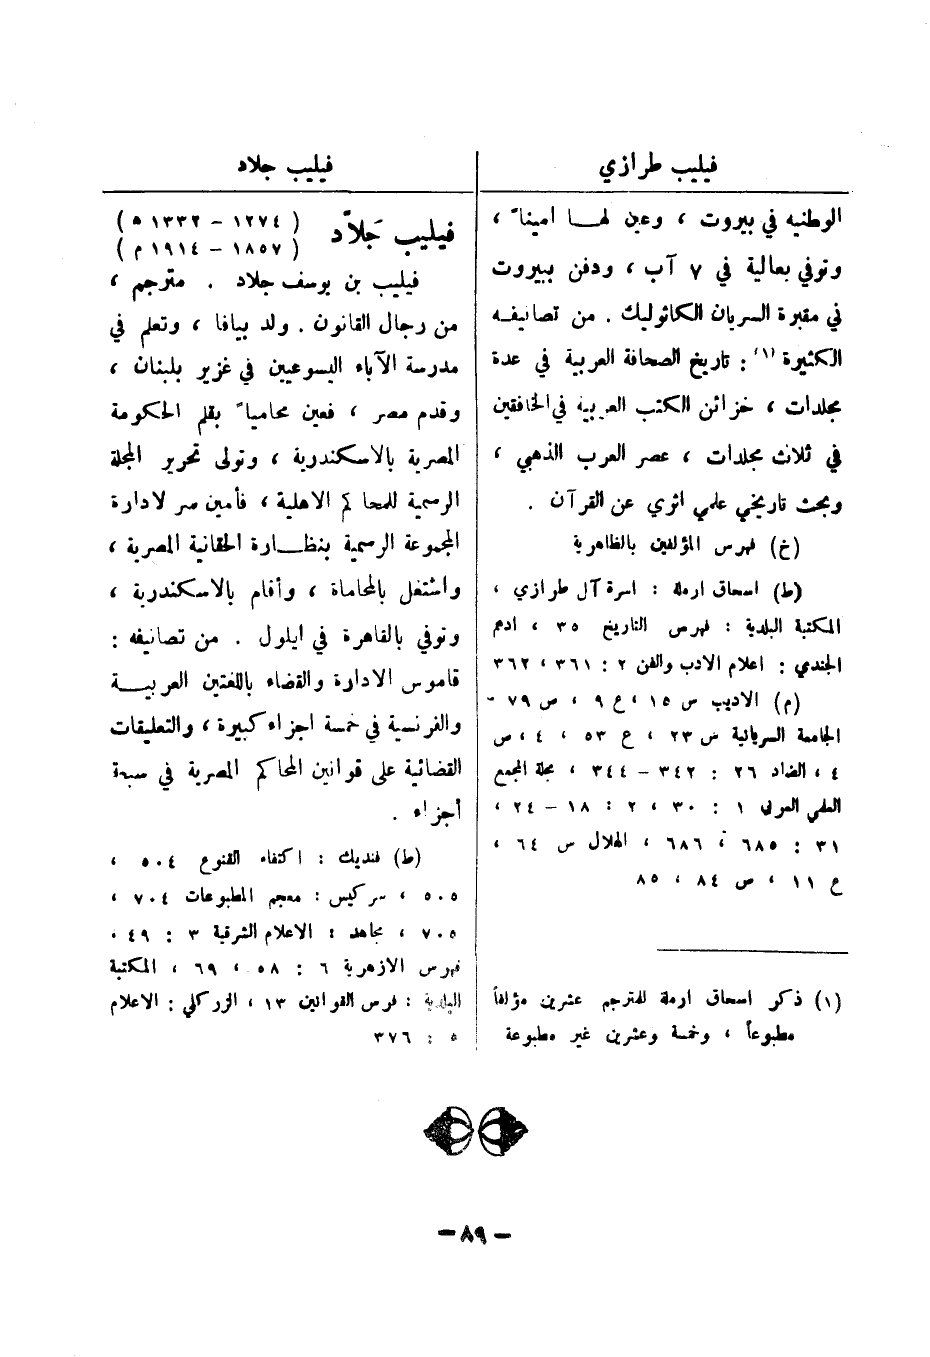 فيليب طرازي
الوطنيه في بيروت ، وعين لهـا اميناً ،
وتوفي بعالية في ٧ آب ، ودفن ببيروت
في مقبرة السريان الكاثوليك . من تصانيفه
الكثيرة (١) : تاريخ الصحافة العربية في عدة
مجلدات ، خزائن الكتب العربية في الخافقين
في ثلاث مجلدات ، عصر العرب الذهبي ،
وبحث تاريخي علمي اثري عن القرآن .
(خ) فهرس المؤلفين بالظاهرية
(ط) اسحاق ارملة : اسرة آل طرازي ،
المكتبة البلدية : فهرس التاريخ ٣٥ ، ادهم
الجندي : اعلام الادب والفن ٢ : ٣٦١ ، ٣٦٢
(م) الاديب س ١٥ ، ع ٩ ، ص ٧٩ -
الجامعة السريانية س ٢٣ ، ع ٥٣ ، ٤ ، ص
٤ ، الضاد ٢٦ : ٣٤٢ – ٣٤٤ ، مجلة المجمع
العلمي العربي ١ : ٣٠ ، ٢ : ١٨ – ٢٤ ،
٣١ : ٦٨٥ ، ٦٨٦ ، الهلال س ٦٤ ،
ع ١١ ، ص ٨٤ ، ٨٥
(١) ذكر اسحاق ارملة للمترجم عشرين مؤلفاً
مطبوعاً ، وخمسة وعشرين غير مطبوعة
فيليب جلاد
فيليب جَلاّد (١٢٧٤ – ١٣٣٢ ه)
(١٨٥٧ – ١٩١٤ م)
فيليب بن يوسف جلاد . مترجم ،
من رجال القانون . ولد بيافا ، وتعلم في
مدرسة الآباء اليسوعيين في غزير بلبنان ،
وقدم مصر ، فعين محامياً بقلم الحكومة
المصرية بالاسكندرية ، وتولى تحرير المجلة
الرسمية للمحاكم الاهلية ، فأمين سر لادارة
المجموعة الرسمية بنظـارة الحقانية المصرية ،
واشتغل بالمحاماة ، وأقام بالاسكندرية ،
وتوفي بالقاهرة في ايلول . من تصانيفه :
قاموس الادارة والقضاء باللغتين العربيـة
والفرنسية في خمسة اجزاء كبيرة ، والتعليقات
القضائية على قوانين المحاكم المصرية في سبعة
أجزاء .
(ط) فنديك : اكتفاء القنوع ٥٠٤ ،
٥٠٥ ، سركيس : معجم المطبوعات ٧٠٤ ،
٧٠٥ ، مجاهد : الاعلام الشرقية ٣ : ٤٩ .
فهرس الازهرية ٦ : ٥٨ ، ٦٩ ، المكتبة
البلدية : فرس القوانين ١٣ ، الزركلي : الاعلام
٥ : ٣٧٦
– ٨٩ –